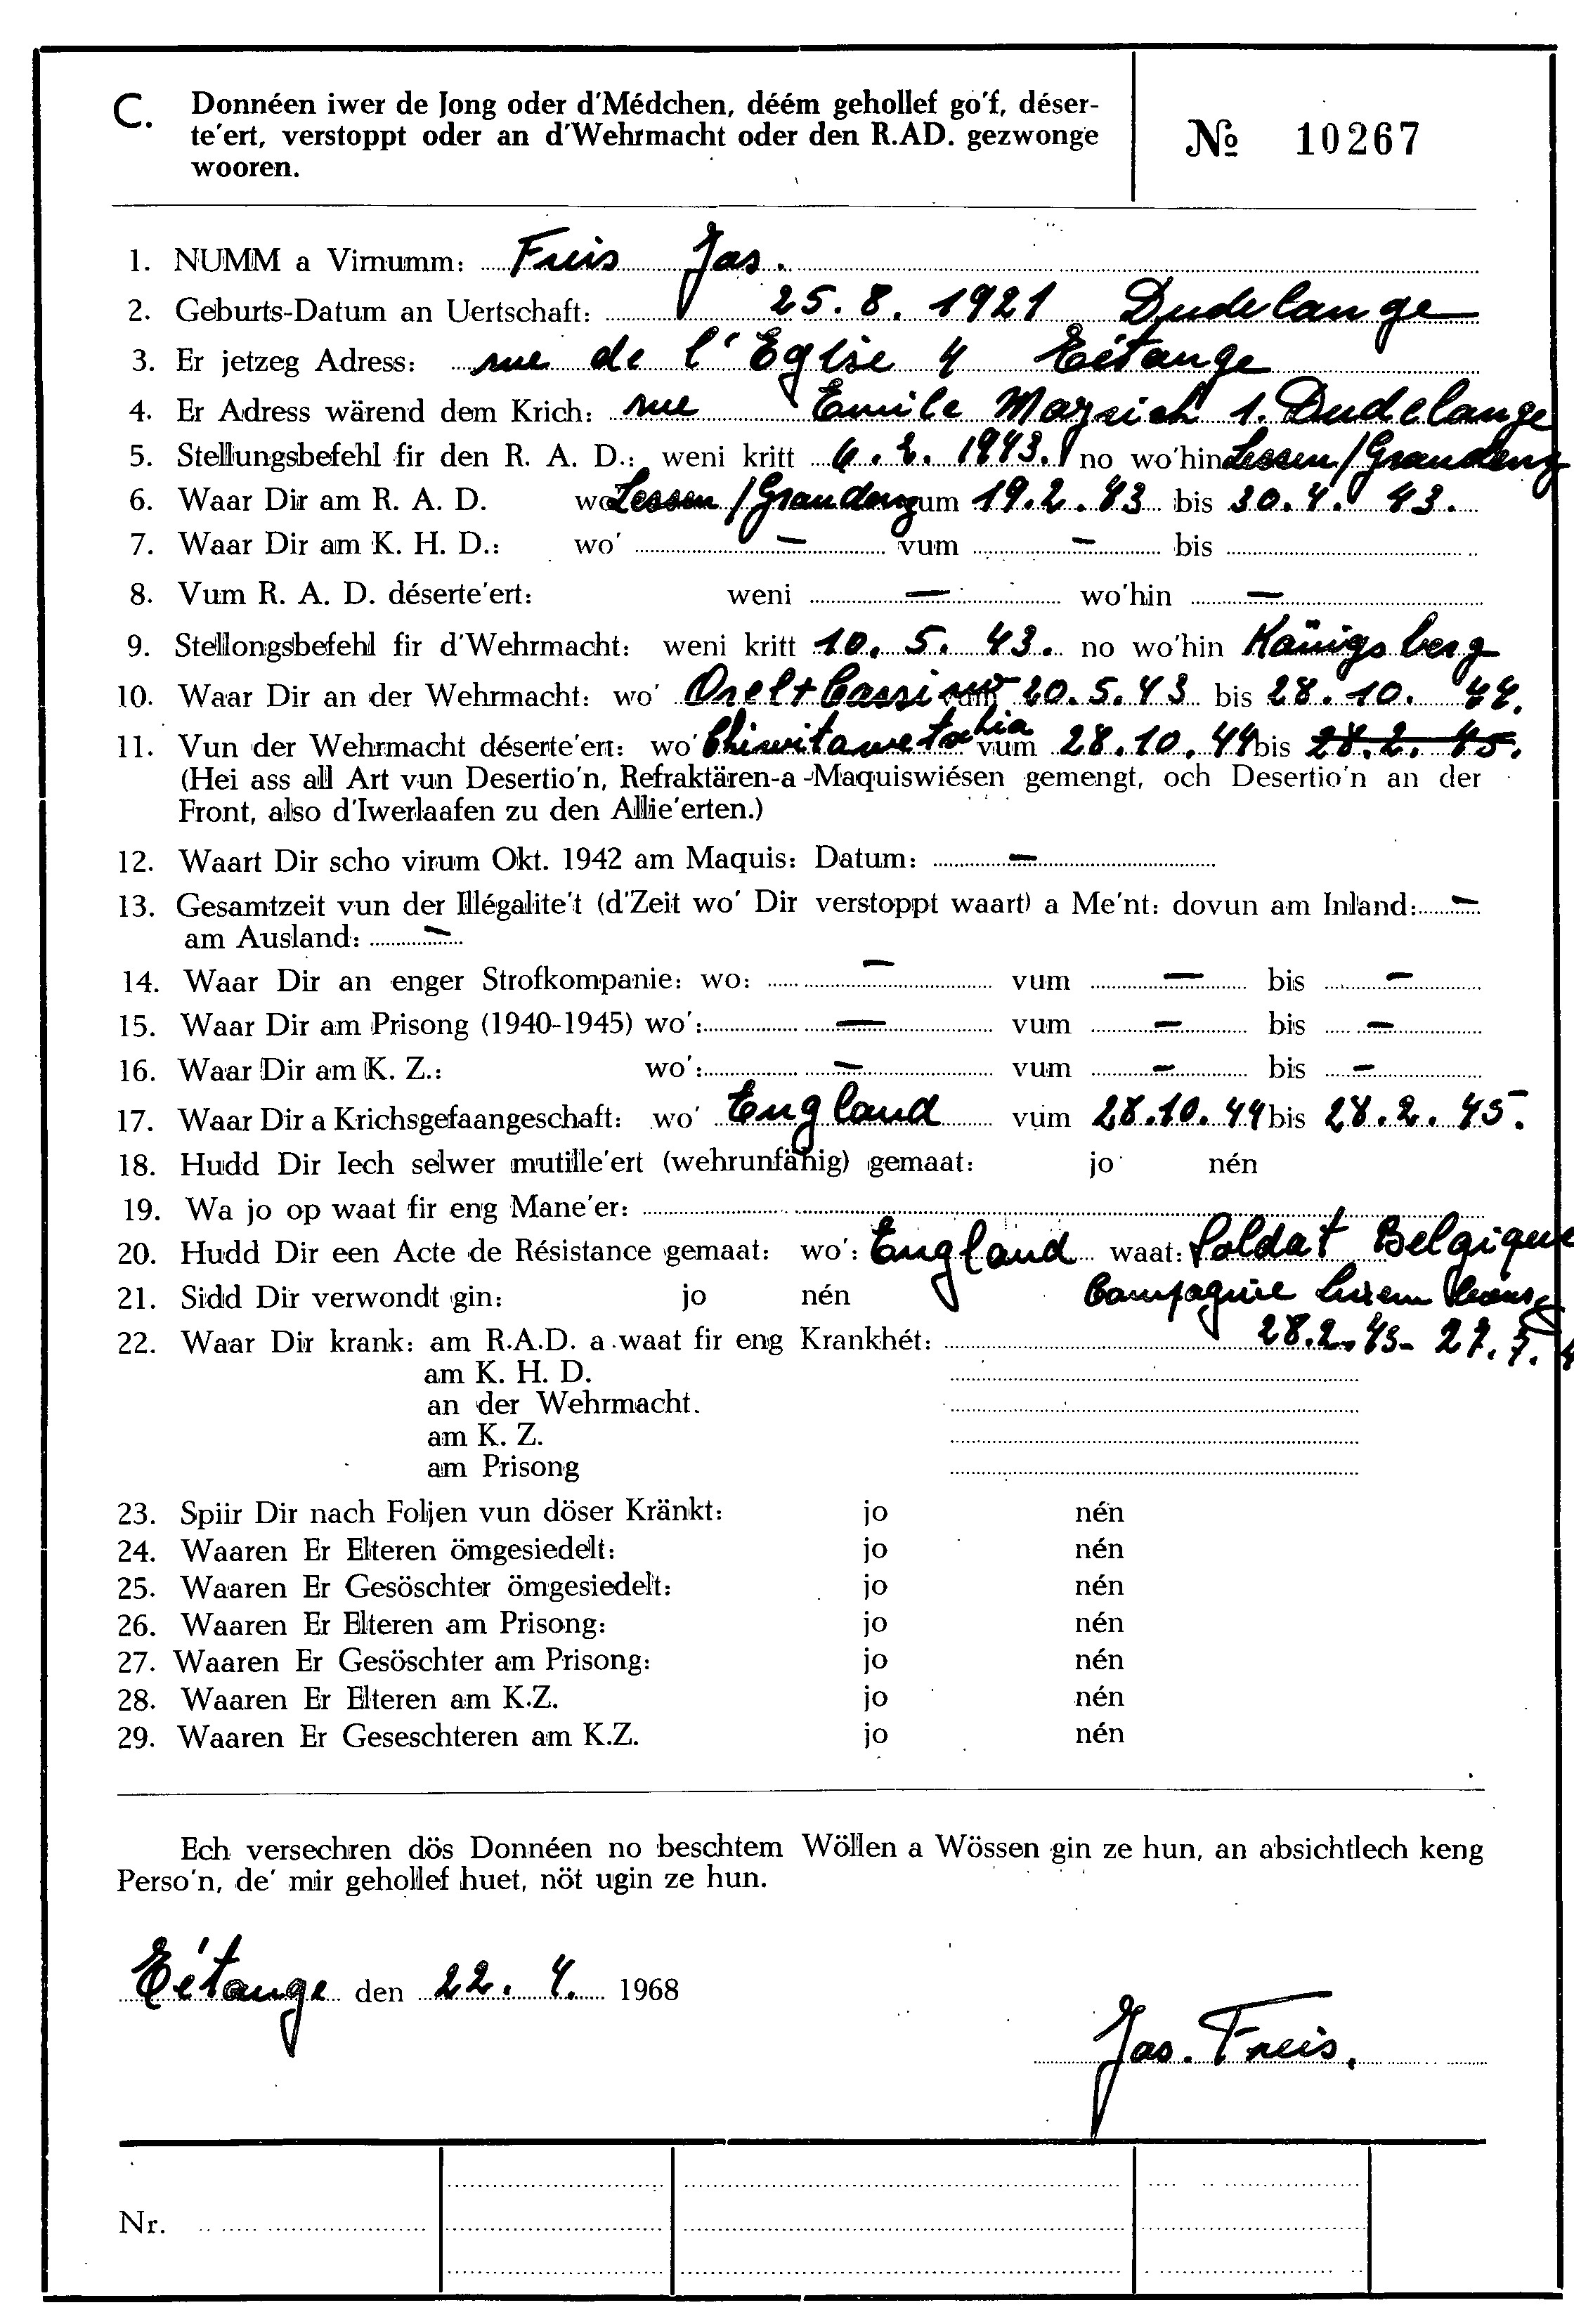 C. Donnéen iwer de Jong oder d'Médchen, déém gehollef go'f, déser-
te'ert, verstoppt oder an d'Wehrmacht oder den R.AD. gezwonge
wooren.
№ 10267
1. NUMM a Virnumm: Freis Jas.
2. Geburts-Datum an Uertschaft: 25. 8. 1921 Dudelange
3. Er jetzeg Adress: rue de l'Eglise 4 Tétange
4. Er Adress wärend dem Krich: rue Emile Mayrich 1. Dudelange
5. Stellungsbefehl fir den R. A. D.: weni kritt 6. 2. 1943. no wo'hin Lessen/Graudenz
6. Waar Dir am R. A. D. wo Lessen/Graudenz um 19.2.43 bis 30.4. 43.
7. Waar Dir am K. H. D.: wo' — vum — bis
8. Vum R. A. D. déserte'ert: weni — wo'hin —
9. Stellongsbefehl fir d'Wehrmacht: weni kritt 10. 5. 43. no wo'hin Känigsberg
10. Waar Dir an der Wehrmacht: wo' Orel + Cassino vum 20.5.43 bis 28.10. 44.
11. Vun der Wehrmacht déserte'ert: wo' vum 28.10.44 bis 28.2.45.
(Hei ass all Art vun Desertio'n, Refraktären-a -Maquiswiésen gemengt, och Desertio'n an der
Front, also d'Iwerlaafen zu den Allie'erten.)
12. Waart Dir scho virum Okt. 1942 am Maquis: Datum: —
13. Gesamtzeit vun der Illégalite't (d'Zeit wo' Dir verstoppt waart) a Me'nt: dovun am Inland: —
am Ausland: —
14. Waar Dir an enger Strofkompanie: wo: — vum — bis —
15. Waar Dir am Prisong (1940-1945) wo': — vum — bis —
16. Waar Dir am K. Z.: wo': — vum — bis —
17. Waar Dir a Krichsgefaangeschaft: wo' England vum 28.10.44 bis 28.2.45.
18. Hudd Dir Iech selwer mutille'ert (wehrunfähig) gemaat: jo nén
19. Wa jo op waat fir eng Mane'er:
20. Hudd Dir een Acte de Résistance gemaat: wo': England waat: Soldat Belgique
21. Sidd Dir verwondt gin: jo nén Campagnie Luxembourg
22. Waar Dir krank: am R.A.D. a waat fir eng Krankhét: 28.2.45- 27.7.4
am K. H. D.
an der Wehrmacht.
am K. Z.
am Prisong
23. Spiir Dir nach Foljen vun döser Kränkt: jo nén
24. Waaren Er Elteren ömgesiedelt: jo nén
25. Waaren Er Gesöschter ömgesiedelt: jo nén
26. Waaren Er Elteren am Prisong: jo nén
27. Waaren Er Gesöschter am Prisong: jo nén
28. Waaren Er Elteren am K.Z. jo nén
29. Waaren Er Geseschteren am K.Z. jo nén
Ech versechren dös Donnéen no beschtem Wöllen a Wössen gin ze hun, an absichtlech keng
Perso'n, de' mir gehollef huet, nöt ugin ze hun.
Tétange den 22. 4. 1968
Jas. Freis.
Nr.